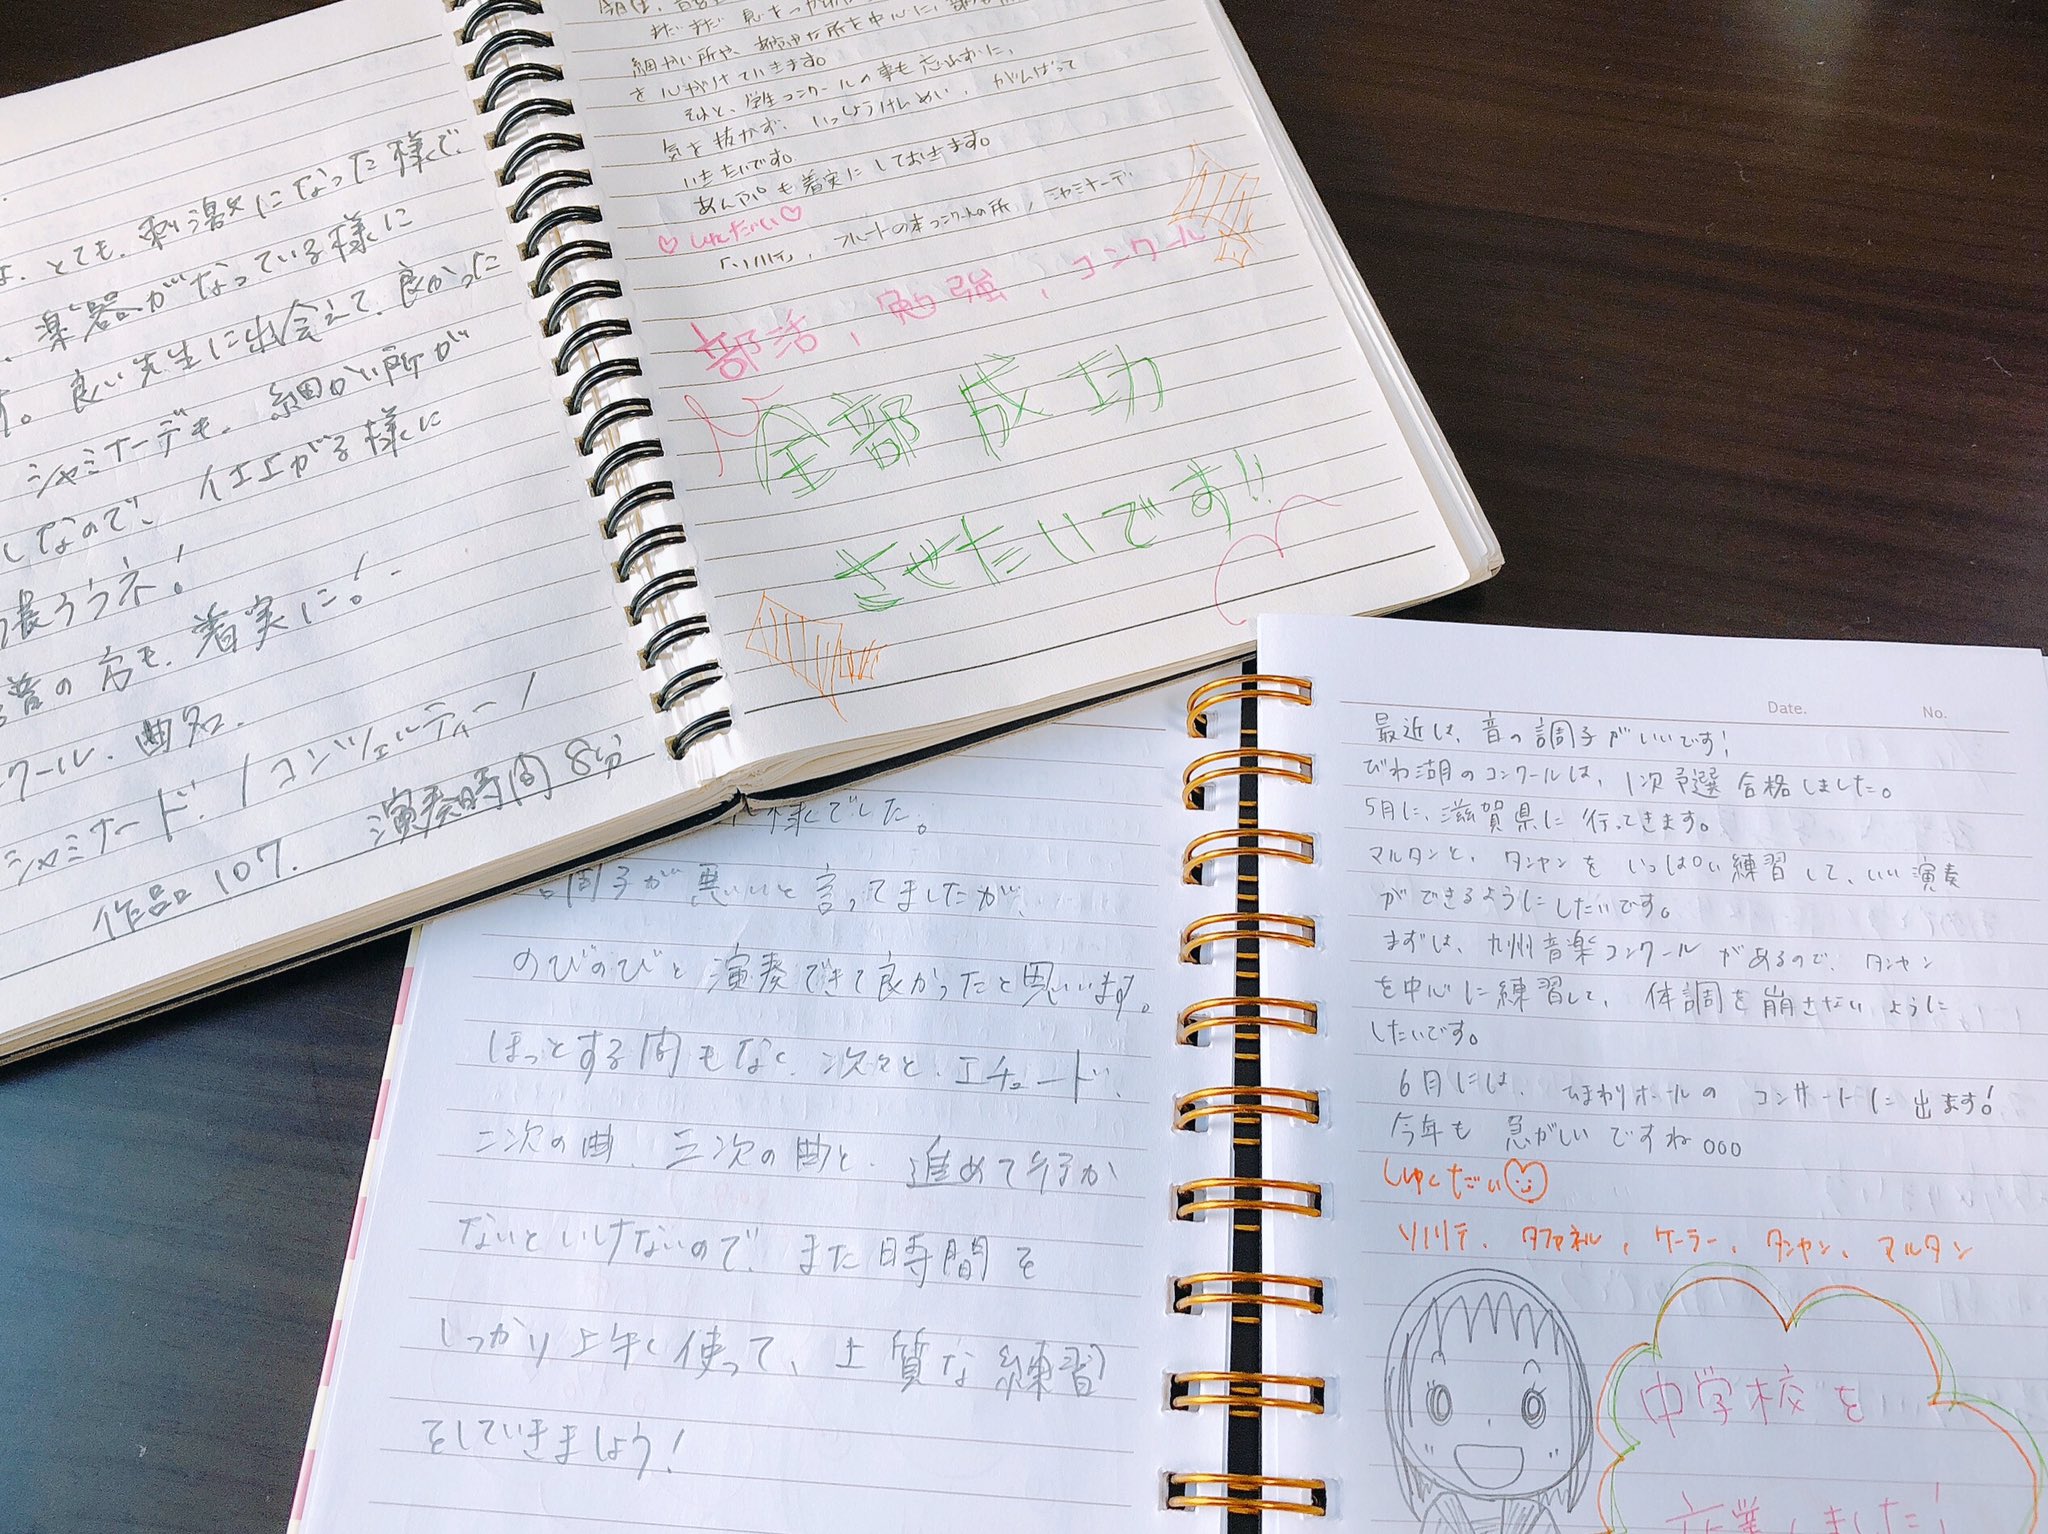 とても、刺激になった様で、
楽器がなっている様に
良い先生に出会えて、良かった
シャミナーデも、細かい所が
なので、仕上がる様に
張ろうネ!
音の方も、着実に!
クール、曲名、
シャミナード/コンツェルティーノ
作品107. 演奏時間8分
まだまだ 息を
細かい所や、 な所を中心に、
を心がけていきます。
それと、学生コンクールの事も忘れずに、
気を抜かず、いっしょうけんめい、がんばって
いきたいです。
あんぷも着実にしておきます。
♡しゅくだい♡
「ソノリテ」、フルートの本コンクールの所、シャミナーデ
部活, 勉強, コンクール
全部成功
させたいです!!
様でした。
調子が悪いと言ってましたが、
のびのびと演奏できて良かったと思います。
ほっとする間もなく、次々と、エチュード、
二次の曲、三次の曲と、進めて行か
ないといけないので、また時間を
しっかり上手く使って、上質な練習
をしていきましょう!
Date. No.
最近は、音の調子がいいです!
びわ湖のコンクールは、1次予選合格しました。
5月に、滋賀県に行ってきます。
マルタンと、タンサンをいっぱい練習して、いい演奏
ができるようにしたいです。
まずは、九州音楽コンクールがあるので、タンサン
を中心に練習して、体調を崩さないように
したいです。
6月には、ひまわりホールのコンサートに出ます!
今年も 急がしいですね。。。
しゅくだい
ソノリテ、タファネル、ケーラー、タンサン、マルタン
中学校を
卒業しました!